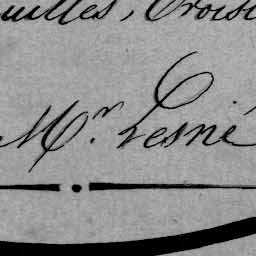 uilles, Croisi
Mr. Lesné